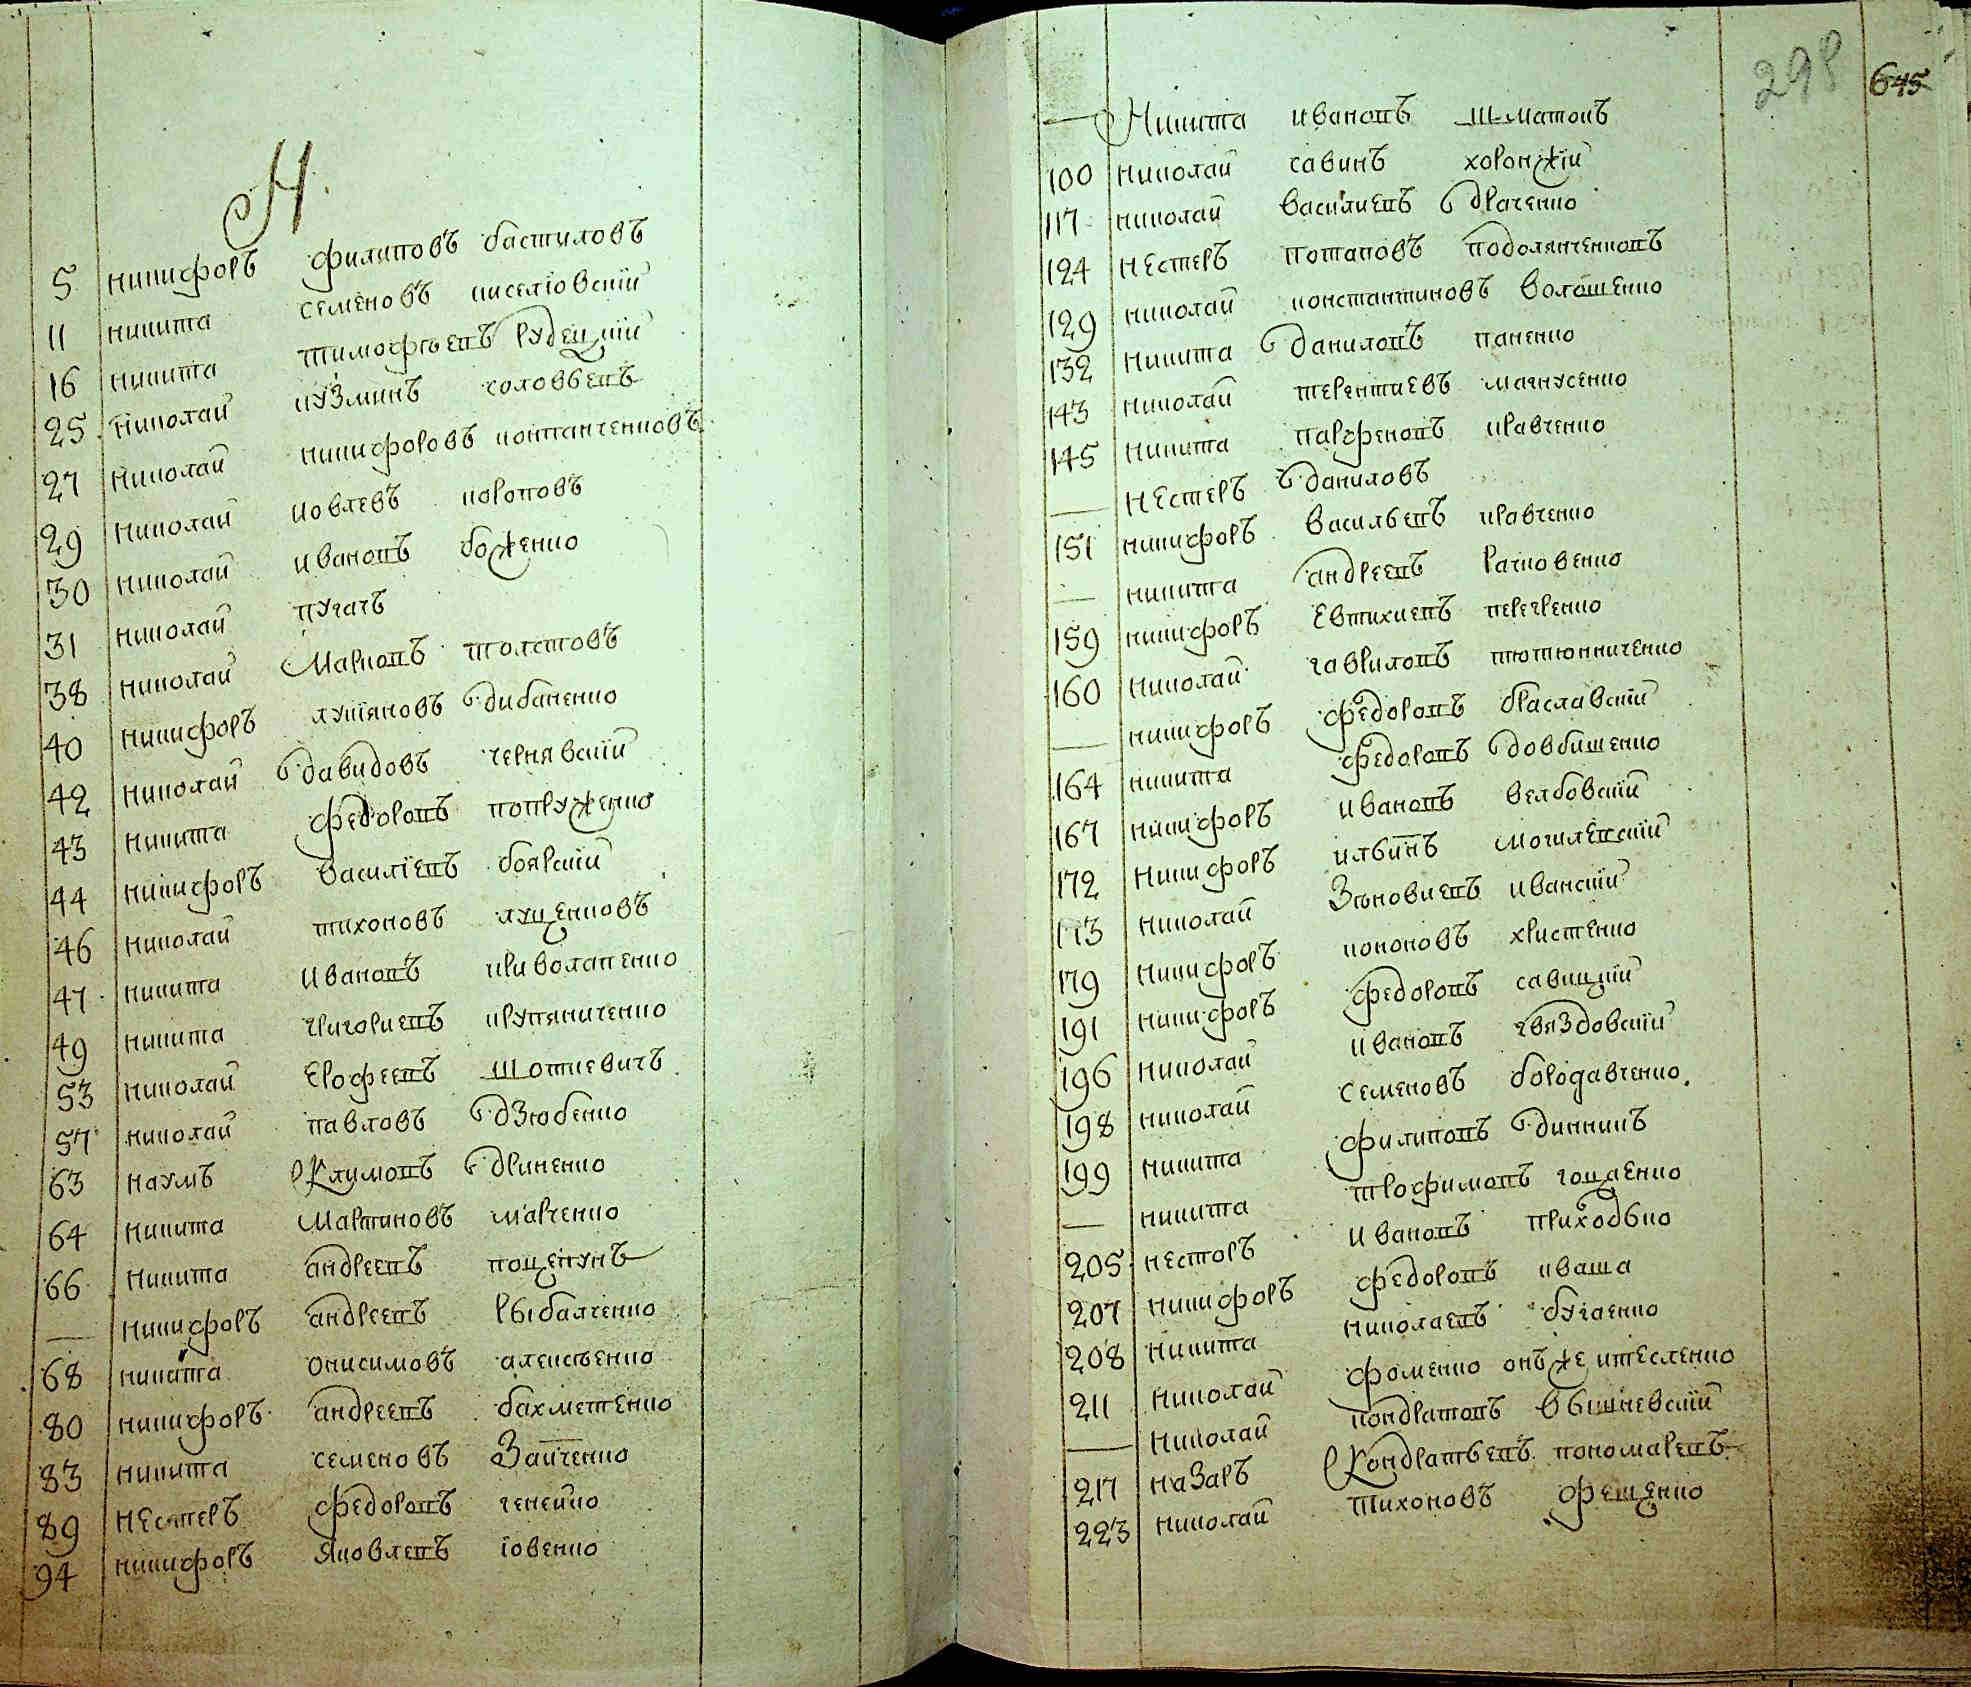 Н.
5 никифоръ филиповъ бастиловъ
11 никита семеновъ киселіовскїй
16 никита тимофѣевъ рудецкїй
25 николай кузминъ соловьевъ
27 николай никифоровъ контанченковъ
29 николай ковлевъ короповъ
30 николай ивановъ боженко
31 николай пугачъ
38 николай марковъ толстовъ
40 никифоръ лукіяновъ дибаненко
42 николай давидовъ чернявскїй
43 никита федоровъ попруженко
44 никифоръ василїевъ боярскїй
46 николай тихоновъ лущенковъ
47 никита ивановъ криволапенко
49 никита григориевъ крупяниченко
53 николай ерофеевъ шоткевичъ
57 николай павловъ дзюбенко
63 наумъ климовъ дриненко
64 никита мартиновъ марченко
66 никита андреевъ поцепунъ
— никифоръ андреевъ рыбалченко
68 никита онисимовъ алексѣенко
80 никифоръ андреевъ бахметенко
83 никита семеновъ зайченко
89 нестеръ федоровъ генейко
94 никифоръ яковлевъ іовенко
298 645
— Никита ивановъ шматокъ
100 николай савинъ хоронжїй
117 николай василиевъ драченко
124 нестеръ потаповъ подолянченковъ
129 николай константиновъ волошенко
132 никита даниловъ паненко
143 николай терентиевъ магнусенко
145 никита парфеновъ кравченко
— нестеръ даниловъ
151 никифоръ васильевъ кравченко
— никита андреевъ рачковенко
159 никифоръ евтихиевъ перегренко
160 николай гавриловъ тютюнниченко
— никифоръ федоровъ браславскїй
164 никита федоровъ довбишенко
167 никифоръ ивановъ велбовскїй
172 никифоръ ильинъ могилевскїй
173 николай зѣновиевъ иванскїй
179 никифоръ кононовъ христенко
191 никифоръ федоровъ савицкїй
196 николай ивановъ гвяздовскїй
198 николай семеновъ бородавченко.
199 никита филиповъ динникъ
— никита трофимовъ гоцаенко
205 несторъ ивановъ приходько
207 никифоръ федоровъ кваша
208 никита николаевъ бугаенко
211 николай фоменко онъ же итесленко
— николай кондратовъ вышневскїй
217 назаръ кондратьевъ пономаревъ
223 николай тихоновъ фещенко